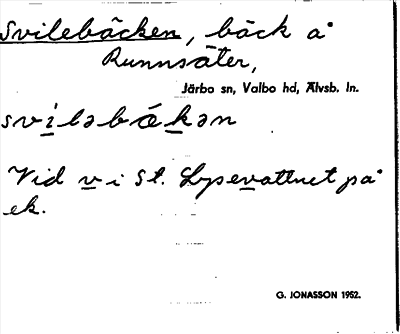 Svilebäcken, bäck å
Runnsäter,
Järbo sn, Valbo hd, Älvsb. ln.
sviləbækən
Vid v i St. Lysevattnet på
ek.
G. JONASSON 1952.